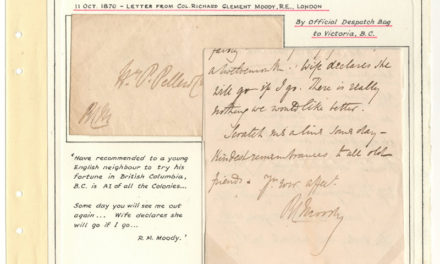 11 OCT. 1870 - LETTER FROM COL. RICHARD CLEMENT MOODY, R.E., LONDON
By Official Despatch Bag
to Victoria, B.C.
Wm. P. Pellew
Wife declares she
will go if I go. There is really
nothing we would like better.
Scratch me a line some day-
Kindest remembrances to all old
friends.
'Have recommended to a young
English neighbour to try his
fortune in British Columbia,
B.C. is A1 of all the Colonies...
Some day you will see me out
again... Wife declares she
will go if I go...
R. M. Moody.'